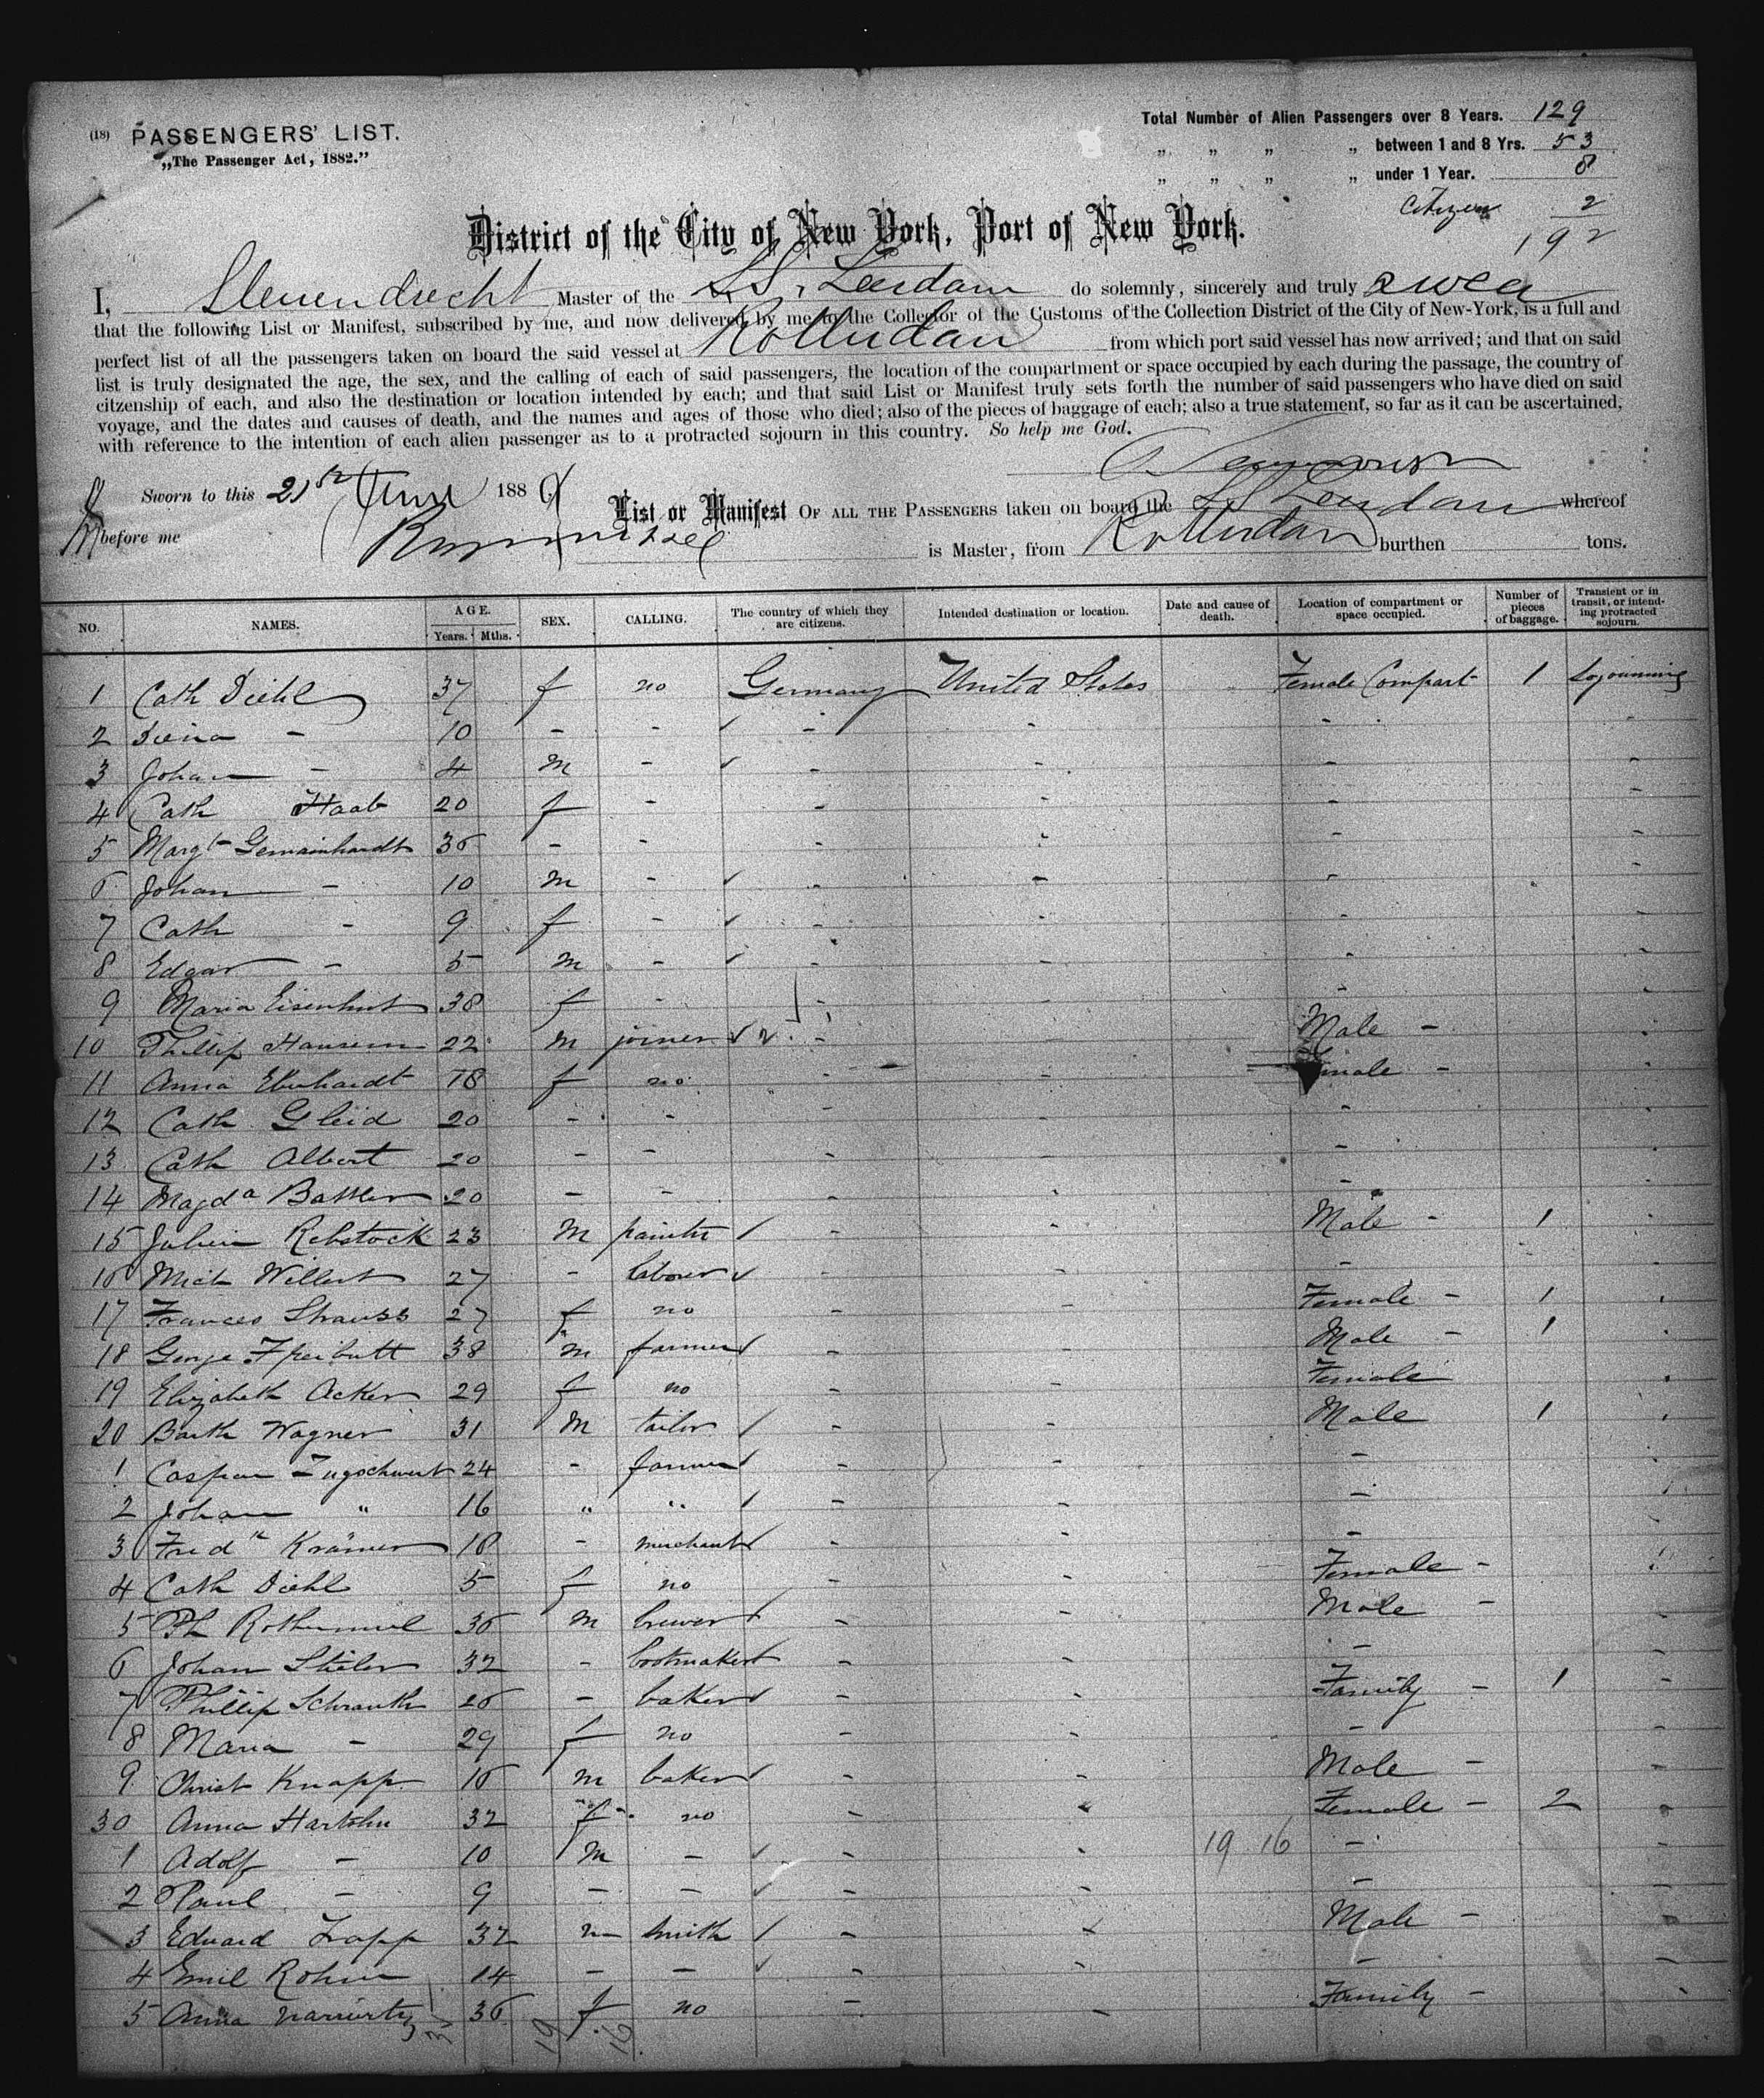 (18) PASSENGERS' LIST.
„The Passenger Act, 1882."
Total Number of Alien Passengers over 8 Years. 129
„ „ „ „ between 1 and 8 Yrs. 53
„ „ „ „ under 1 Year. 8
Citizen 2
192
District of the City of New York, Port of New York.
I, Master of the S.S. Leerdam do solemnly, sincerely and truly swear
that the following List or Manifest, subscribed by me, and now delivered by me to the Collector of the Customs of the Collection District of the City of New-York, is a full and
perfect list of all the passengers taken on board the said vessel at Rotterdam from which port said vessel has now arrived; and that on said
list is truly designated the age, the sex, and the calling of each of said passengers, the location of the compartment or space occupied by each during the passage, the country of
citzenship of each, and also the destination or location intended by each; and that said List or Manifest truly sets forth the number of said passengers who have died on said
voyage, and the dates and causes of death, and the names and ages of those who died; also of the pieces of baggage of each; also a true statement, so far as it can be ascertained,
with reference to the intention of each alien passenger as to a protracted sojourn in this country. So help me God.
Sworn to this 21st June 188
before me
List or Manifest OF ALL THE PASSENGERS taken on board the SS Leerdam whereof
is Master, from Rotterdam burthen tons.
NO. NAMES. AGE. Years. Mths. SEX. CALLING. The country of which they are citizens. Intended destination or location. Date and cause of death. Location of compartment or space occupied. Number of pieces of baggage. Transient or in transit, or intending protracted sojourn.
1 Cath Diehl 37 f no Germany United States Female Compart 1 Sojourning
2 - 10 - - ✓ - - - -
3 Johan - 4 m - ✓ - - - -
4 Cath Haab 20 f - - - - -
5 Margt Gemainhardt 36 - - - - - -
6 Johan - 10 m - ✓ - - - -
7 Cath - 9 f - ✓ - - - -
8 Edgar - 5 m - ✓ - - - -
9 Maria Eisenhut 38 f - - - - -
10 Phillip 22 m joiner ✓ - Male -
11 Anna Eberhardt 18 f no - - Female -
12 Cath Gleid 20 - - - - -
13 Cath Albert 20 - - - - -
14 Magda 20 - - - - -
15 Rebstock 23 m painter ✓ - - Male - 1
16 Mich Willert 27 - labourer ✓ - - -
17 Frances Strauss 27 f no - - Female - 1
18 George 38 m farmer ✓ - - Male - 1
19 Elizabeth Acker 29 f no - - Female
20 Barth Wagner 31 m tailor ✓ - - Male 1
1 Caspar 24 - farmer ✓ - - -
2 Johan " 16 " " ✓ - - -
3 Fredk Krämer 18 - merchant ✓ - - -
4 Cath Diehl 5 f no - - Female -
5 Ph 36 m brewer ✓ - - Male -
6 Johan 32 - bootmaker ✓ - - -
7 Phillip Schrauth 26 - baker ✓ - - Family - 1 -
8 Maria - 29 f no - - - -
9 Christ Knapp 16 m baker ✓ - - Male - -
30 Anna 32 f no - - Female - 2 -
1 Adolf - 10 m - ✓ - - 19 16 - -
2 Paul - 9 - - ✓ - - - -
3 Eduard 32 m smith ✓ - - Male - -
4 Emil 14 - - ✓ - - - -
5 Anna 36 f no - - Family - -
19 16